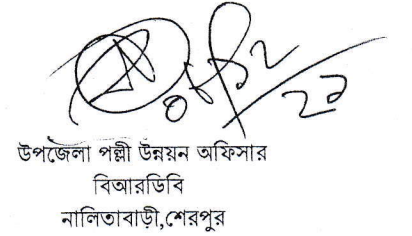 উপজেলা পল্লী উন্নয়ন অফিসার
বিআরডিবি
নালিতাবাড়ী,শেরপুর